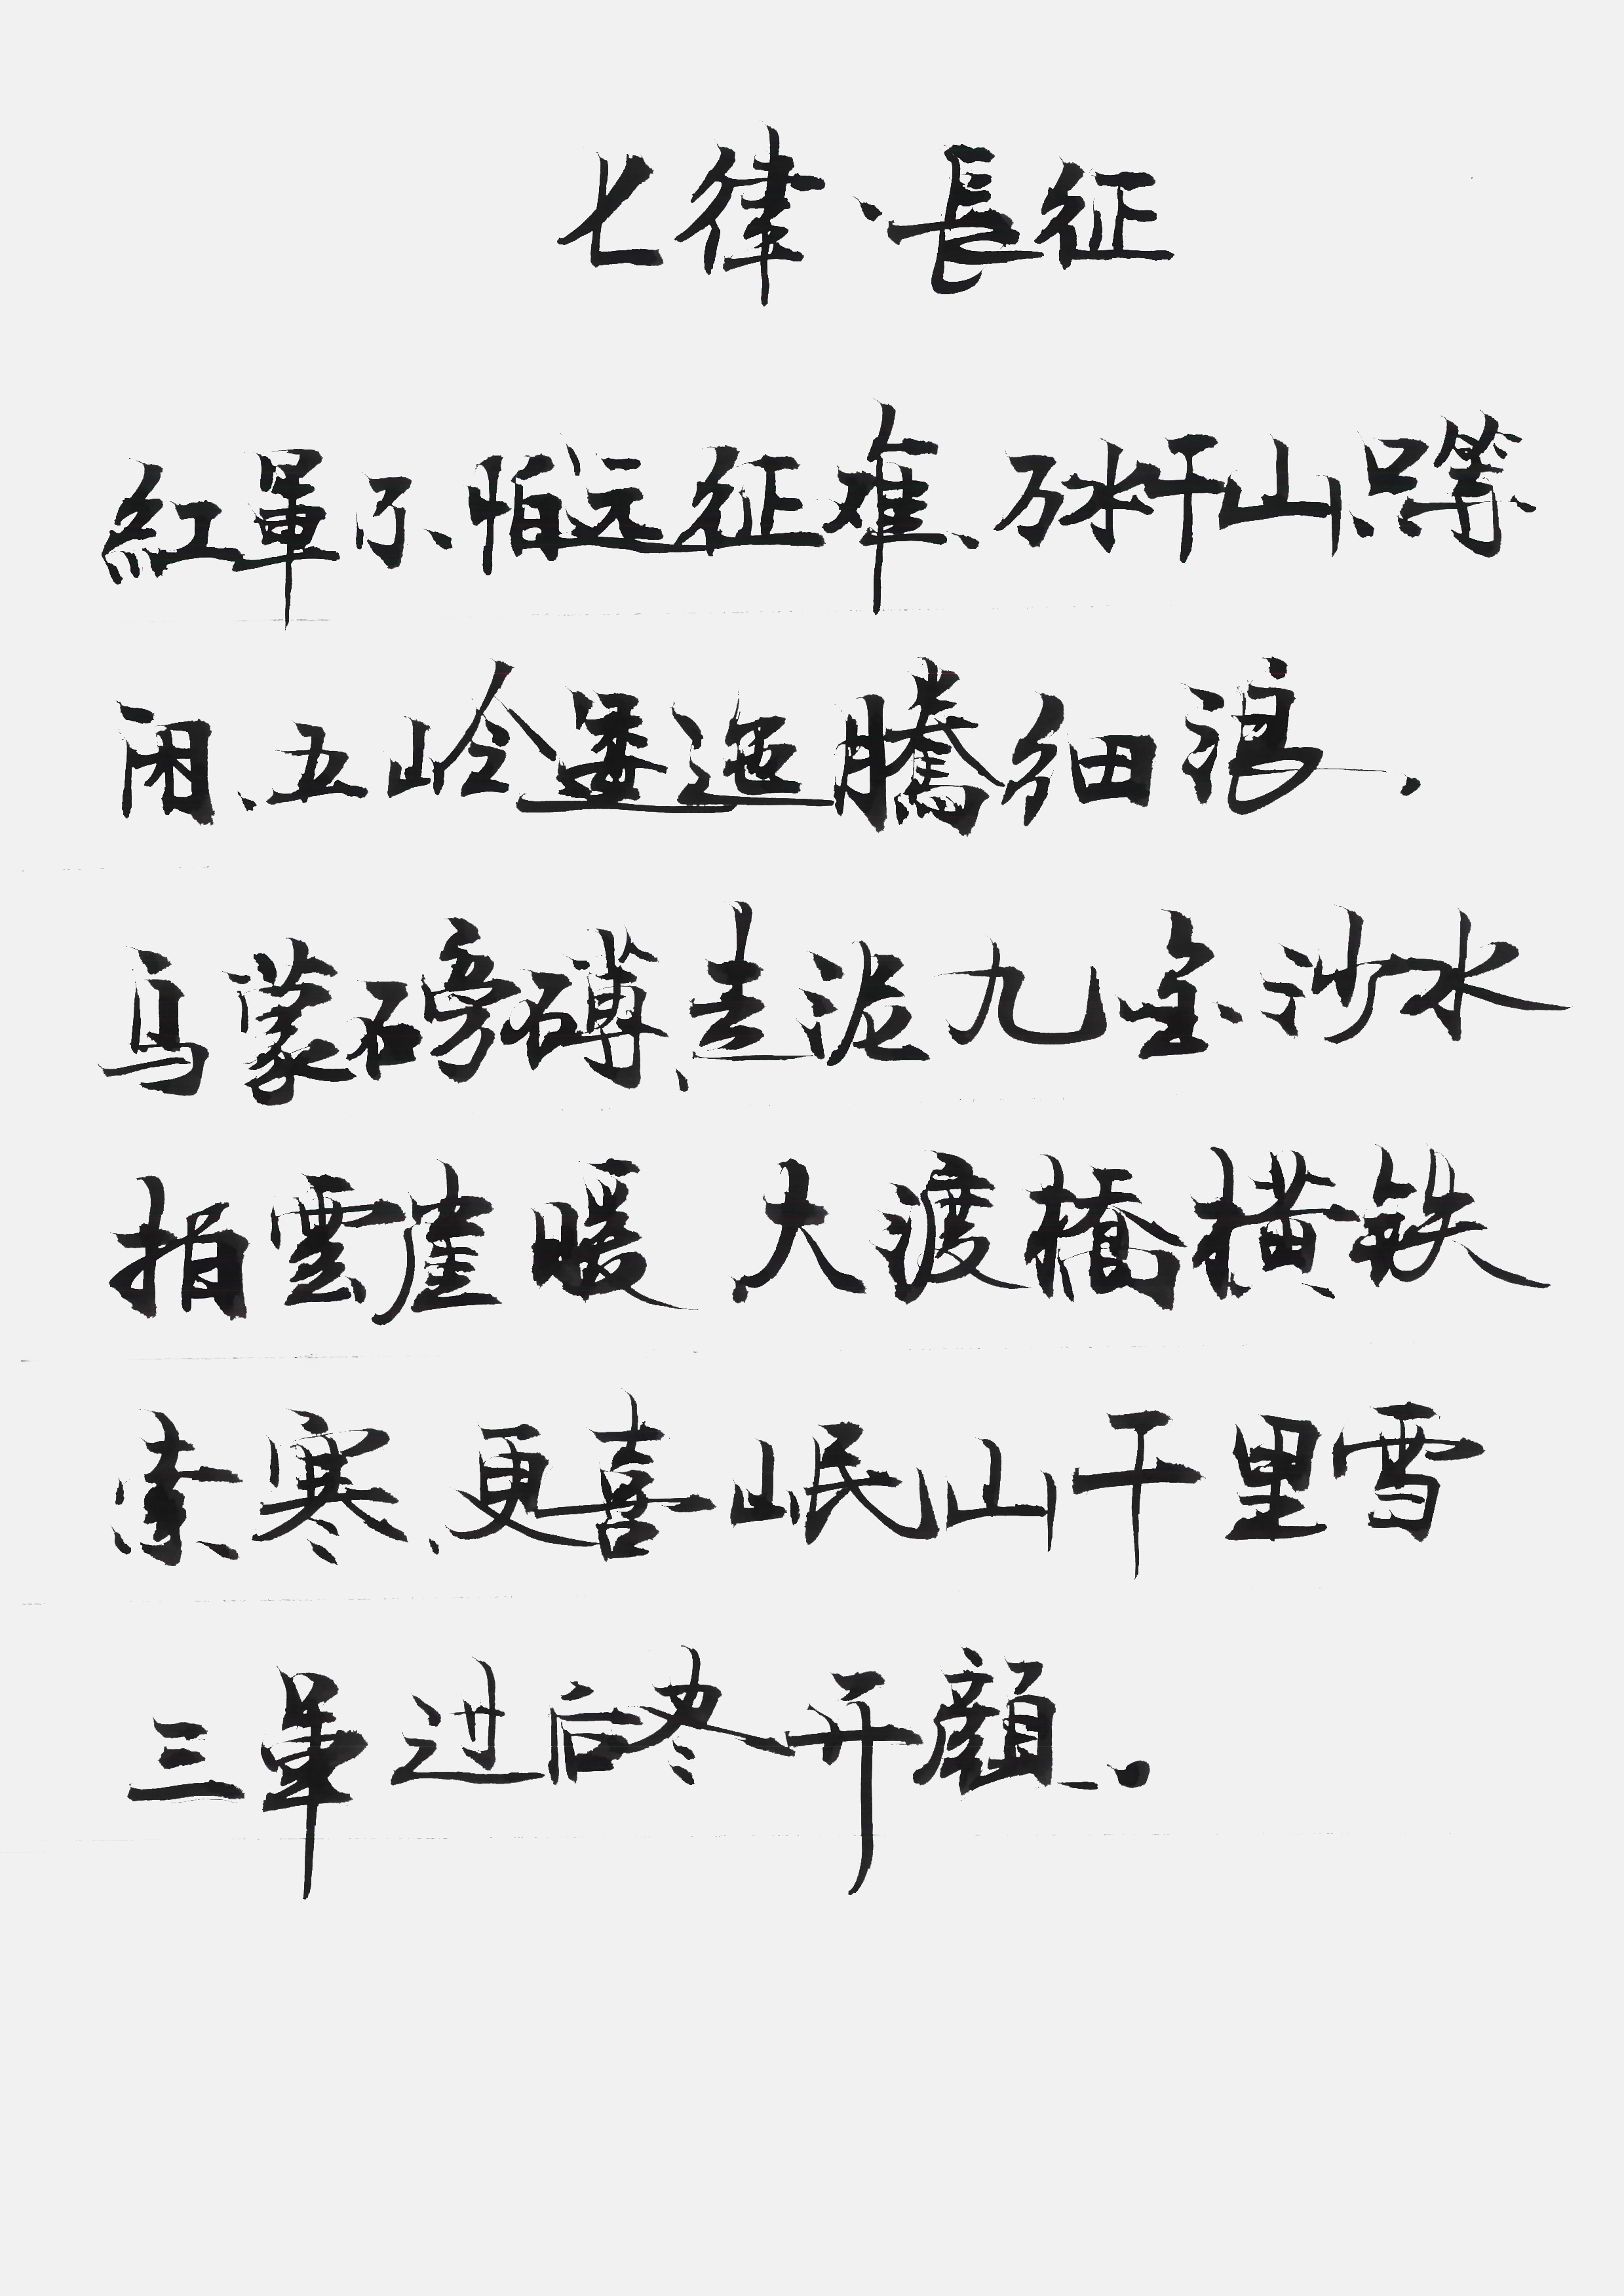 七律·長征
紅軍不怕远征难、万水千山、只等
闲、五岭逶迤腾細浪，
乌蒙磅礴、走泥九金沙水
拍雲崖暖 大渡橋横铁
索寒、更喜岷山千里雪
三軍过后尽开顔。